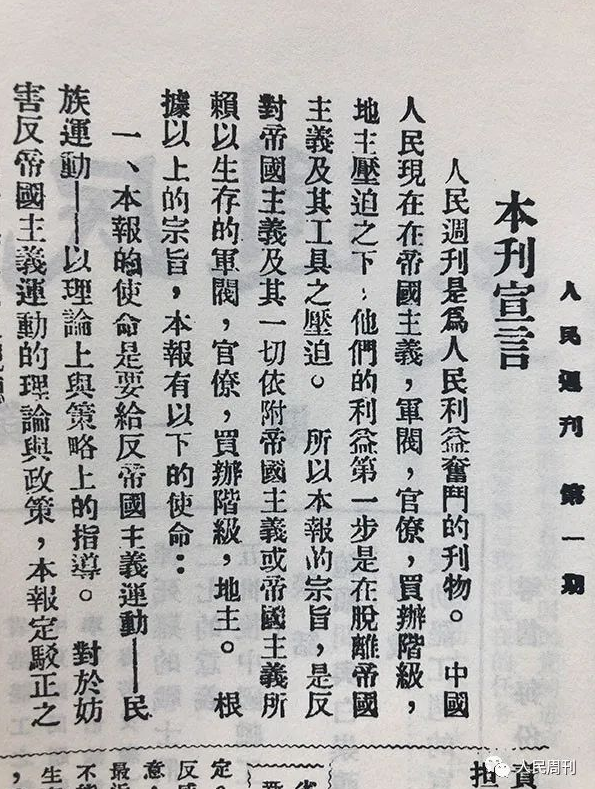 人民週刊 第一期
本刊宣言
人民週刊是爲人民利益奮鬥的刊物。 中國
人民現在在帝國主義，軍閥，官僚，買辦階級，
地主壓迫之下，他們的利益第一步是在脫離帝國
主義及其工具之壓迫。 所以本報的宗旨，是反
對帝國主義及其一切依附帝國主義或帝國主義所
賴以生存的軍閥，官僚，買辦階級，地主。 根
據以上的宗旨，本報有以下的使命：
一、本報的使命是要給反帝國主義運動——民
族運動——以理論上與策略上的指導。 對於妨
害反帝國主義運動的理論與政策，本報定駁正之
担
定。
反
意，
最近
不能
生
人民周刊